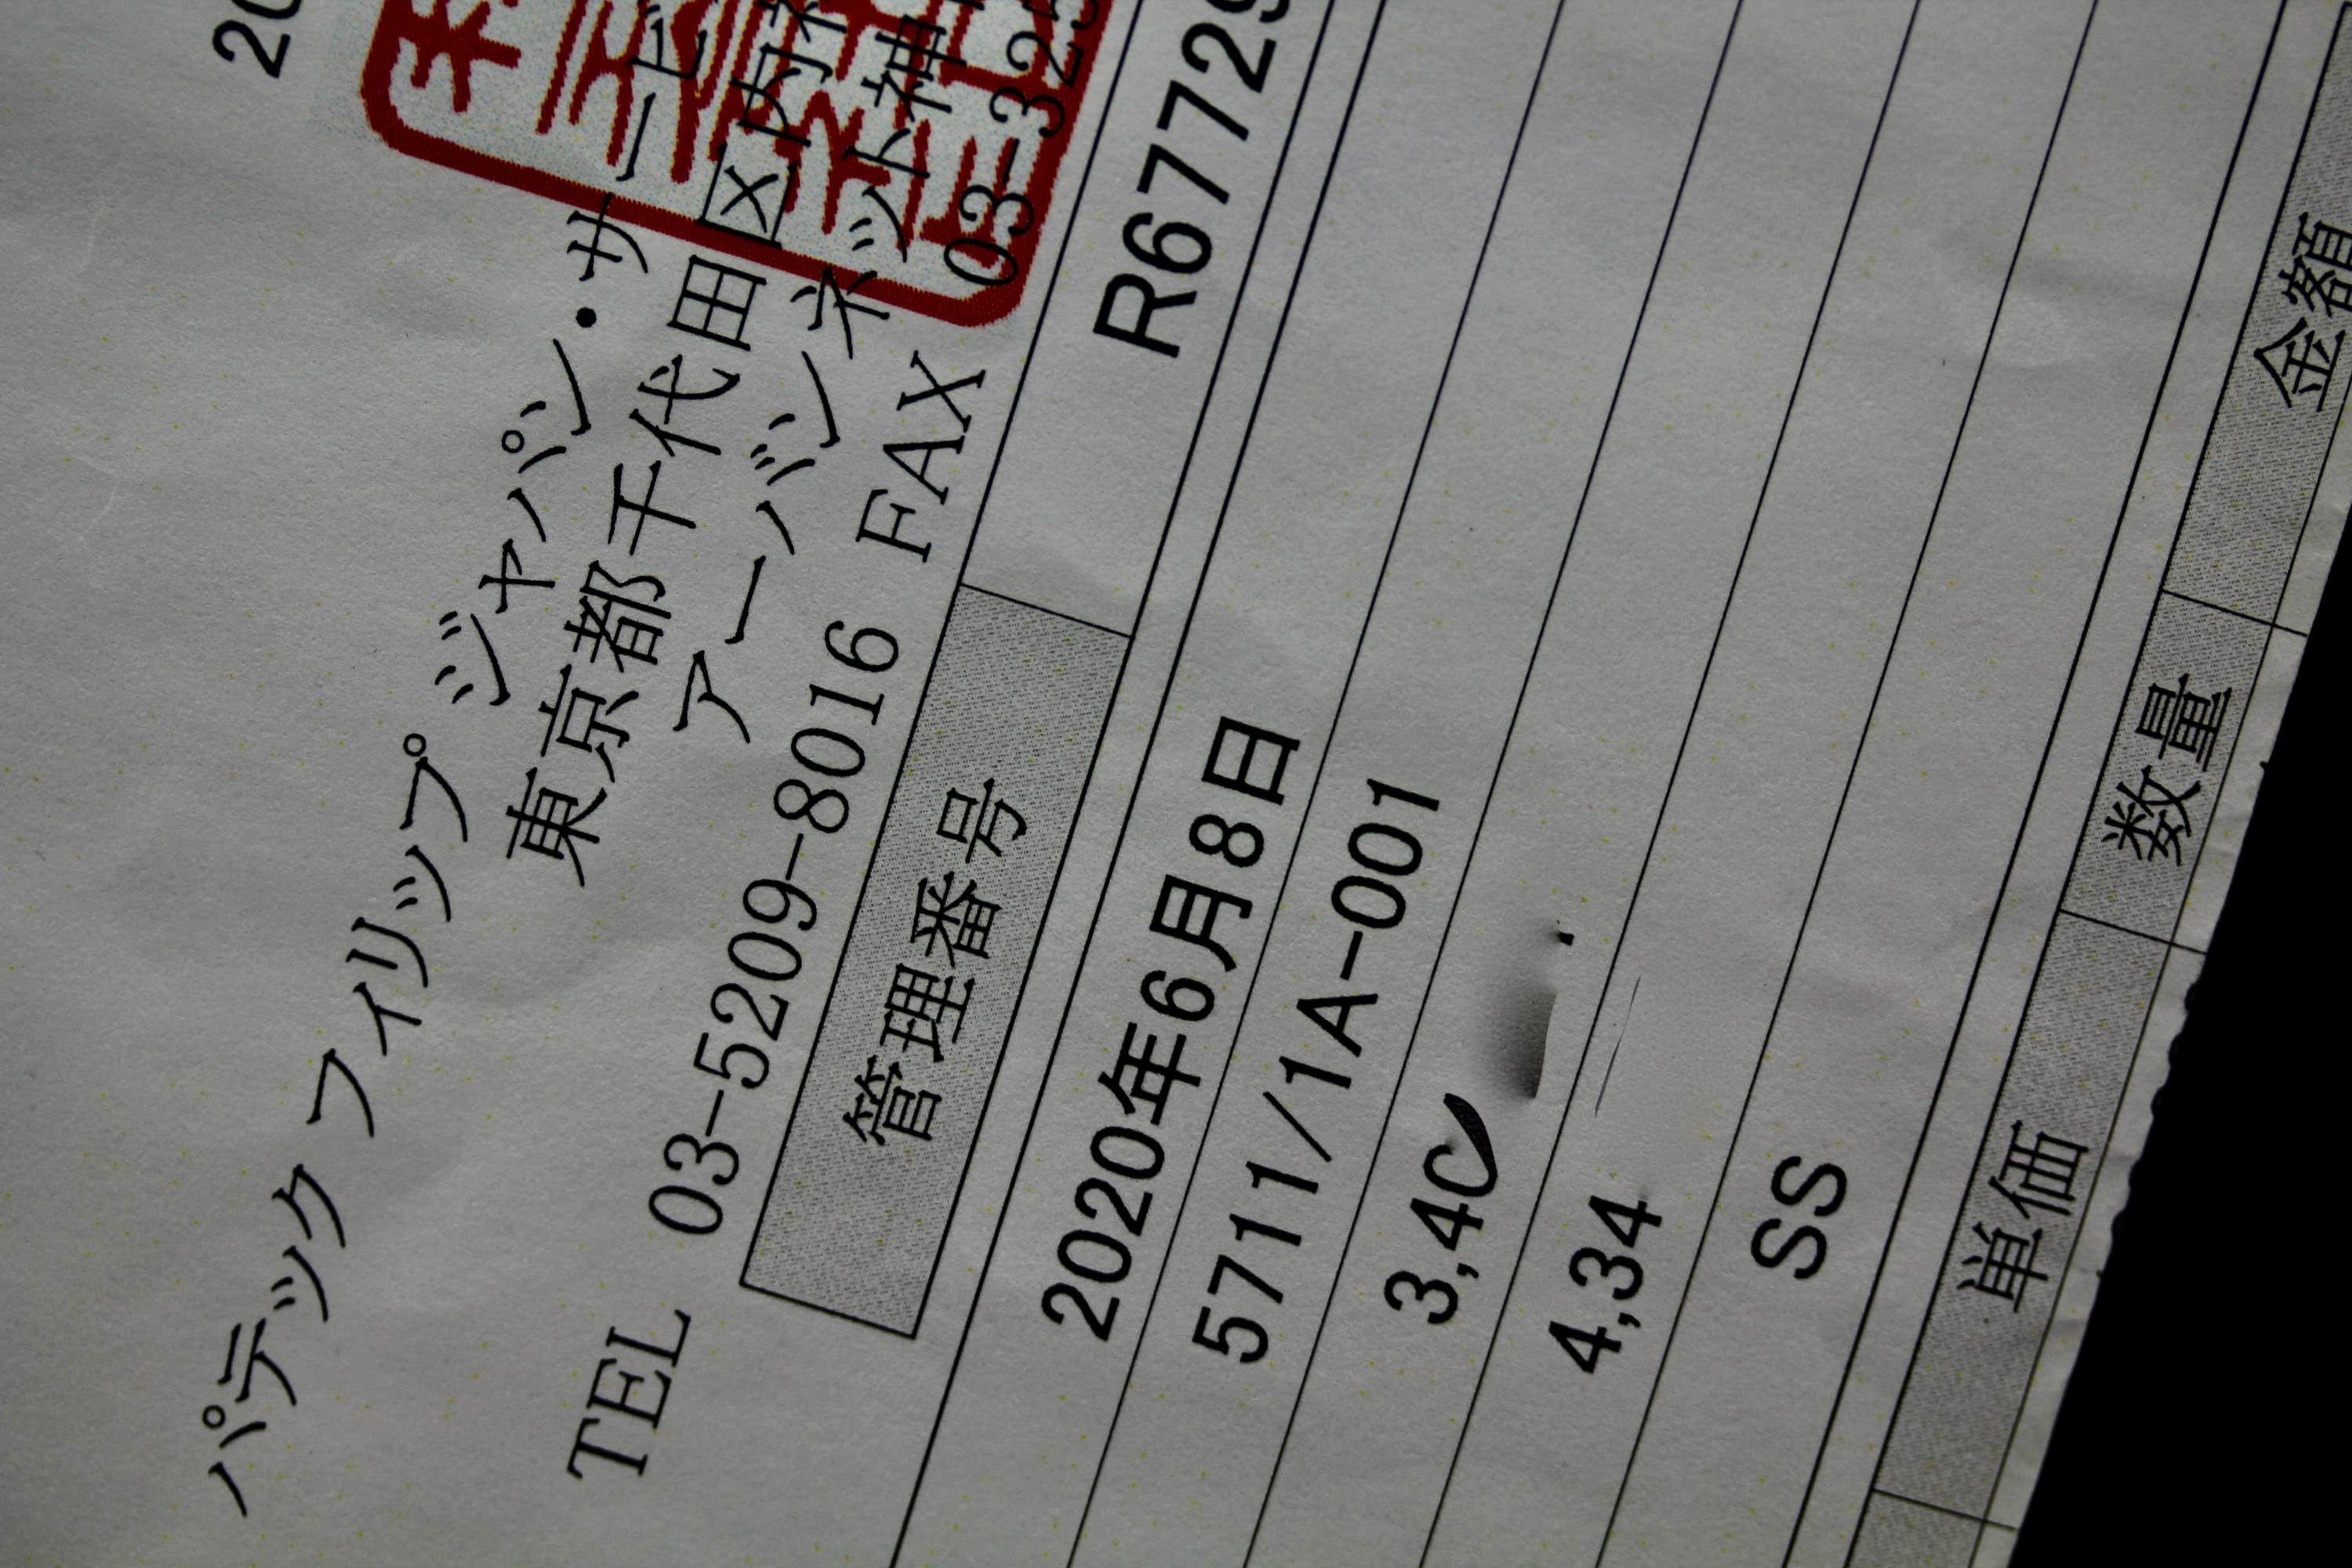 20
パテック フィリップ ジャパン・サービ
東京都千代田区内神
アーバンネット神
TEL 03-5209-8016 FAX 03-325
管理番号 R67729
2020年6月8日
5711/1A-001
3,40
4,34
SS
単価 数量 金額